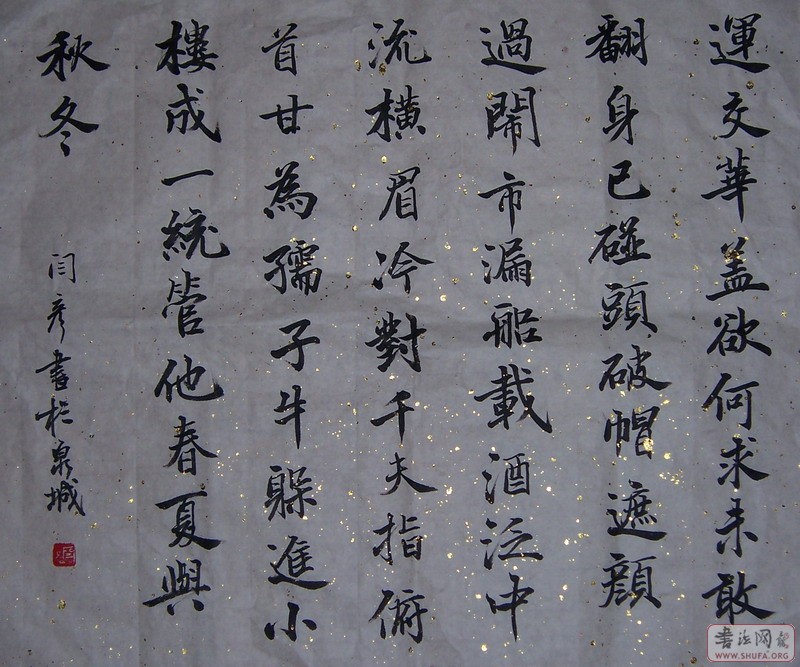 運交華盖欲何求未敢
翻身已碰頭破帽遮顔
過鬧市漏船載酒泛中
流横眉冷對千夫指俯
首甘為孺子牛躲進小
樓成一統管他春夏與
秋冬
闫彦書於泉城
書法网
WWW.SHUFA.ORG